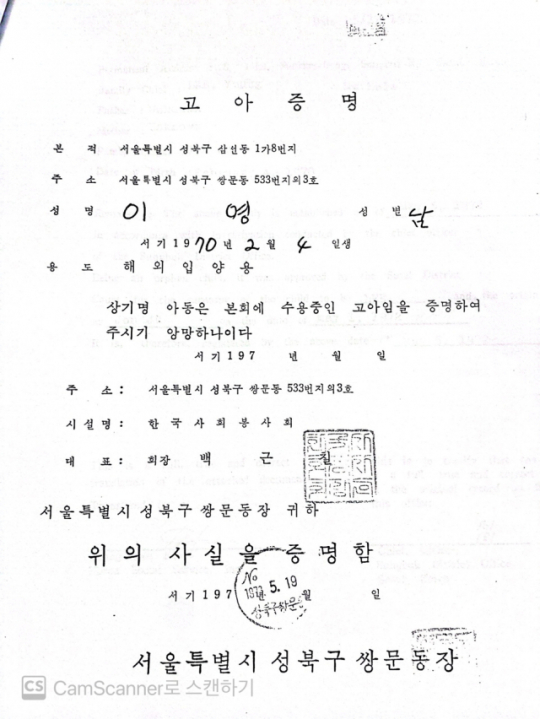 고 아 증 명
본 적 서울특별시 성북구 삼선동 1가8번지
주 소 서울특별시 성북구 쌍문동 533번지의3호
성 명 이 영 성 별 남
서기 1970년 2월 4 일생
용 도 해 외 입 양 용
상기명 아동은 본회에 수용중인 고아임을 증명하여
주시기 앙망하나이다
서기197 년 월 일
주 소 : 서울특별시 성북구 쌍문동 533번지의3호
시 설 명 : 한 국 사 회 봉 사 회
대 표 : 회장 백 근 칠
서울특별시 성북구 쌍문동장 귀하
위 의 사 실 을 증 명 함
서기 197 월 일
No
5. 19
서울특별시 성북구 쌍문동장
CS CamScanner로 스캔하기